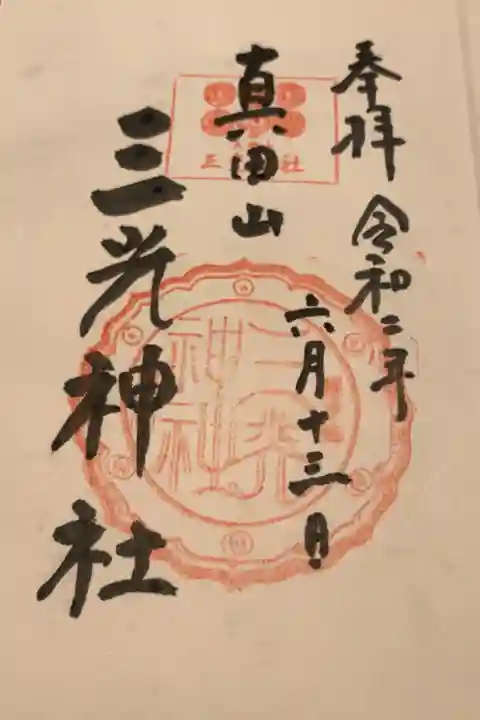 奉拝 令和二年
六月十三日
真田山
三光神社
三光神社